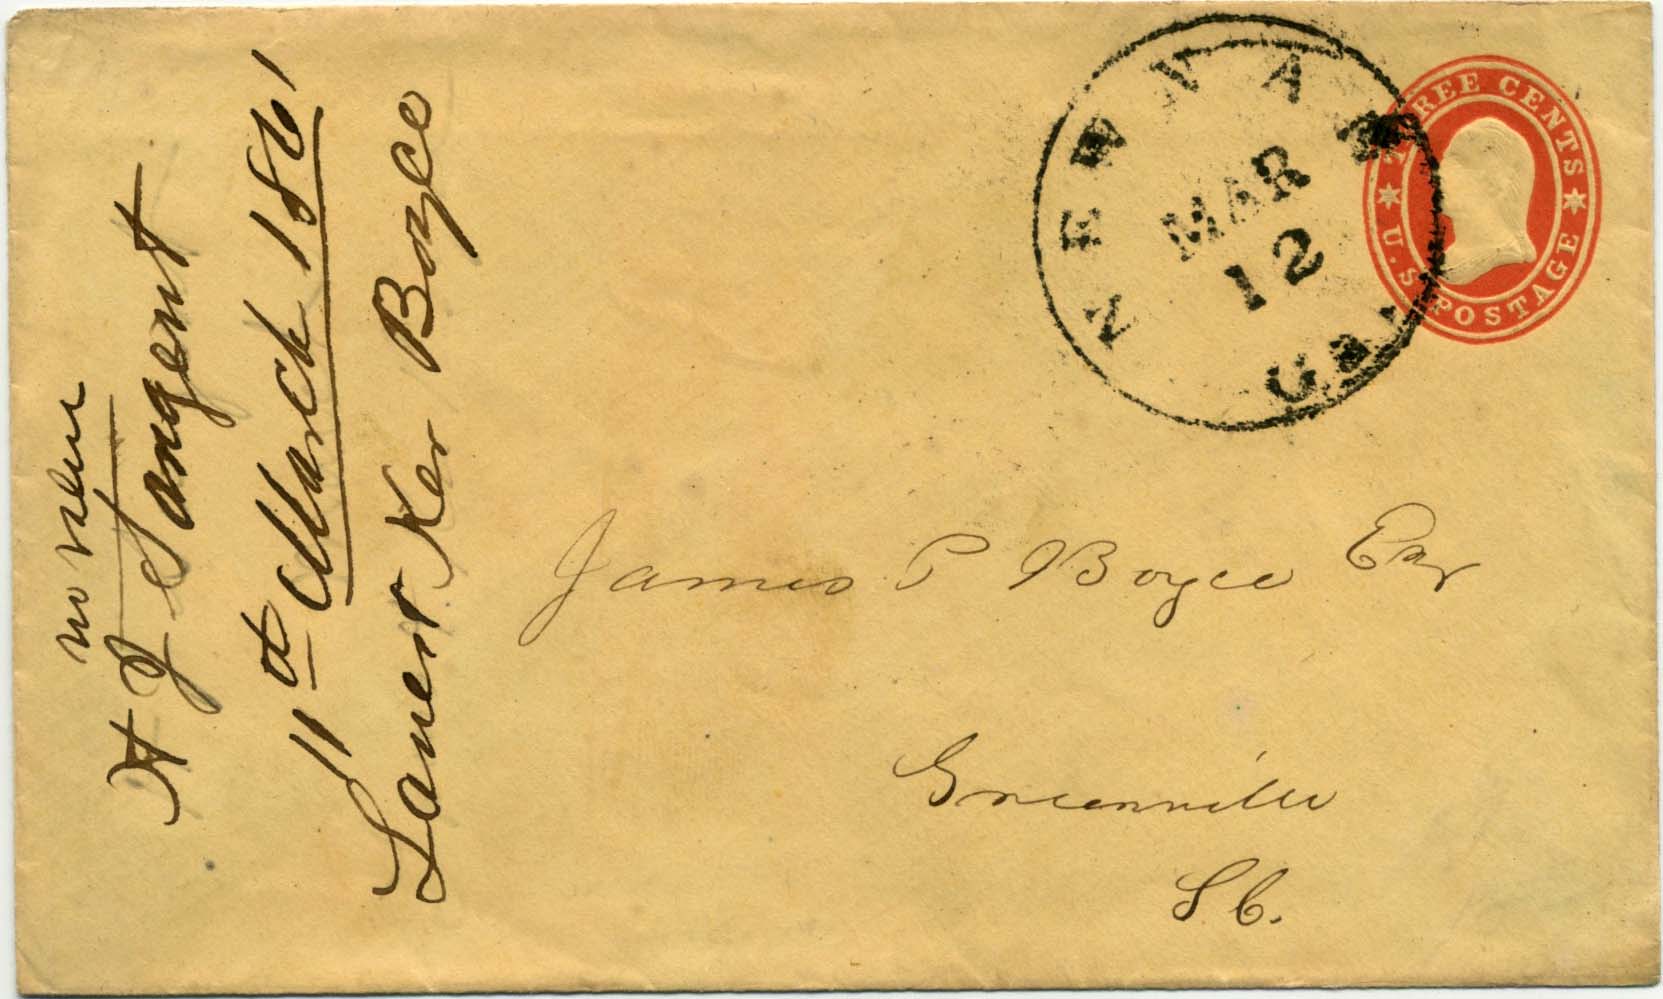 NEWNAN
MAR
12
Ga.
THREE CENTS
U.S. POSTAGE
James P Boyce Esq
Greenville
S.C.
no value
H J Sargent
11th March 1861
Ker Boyce